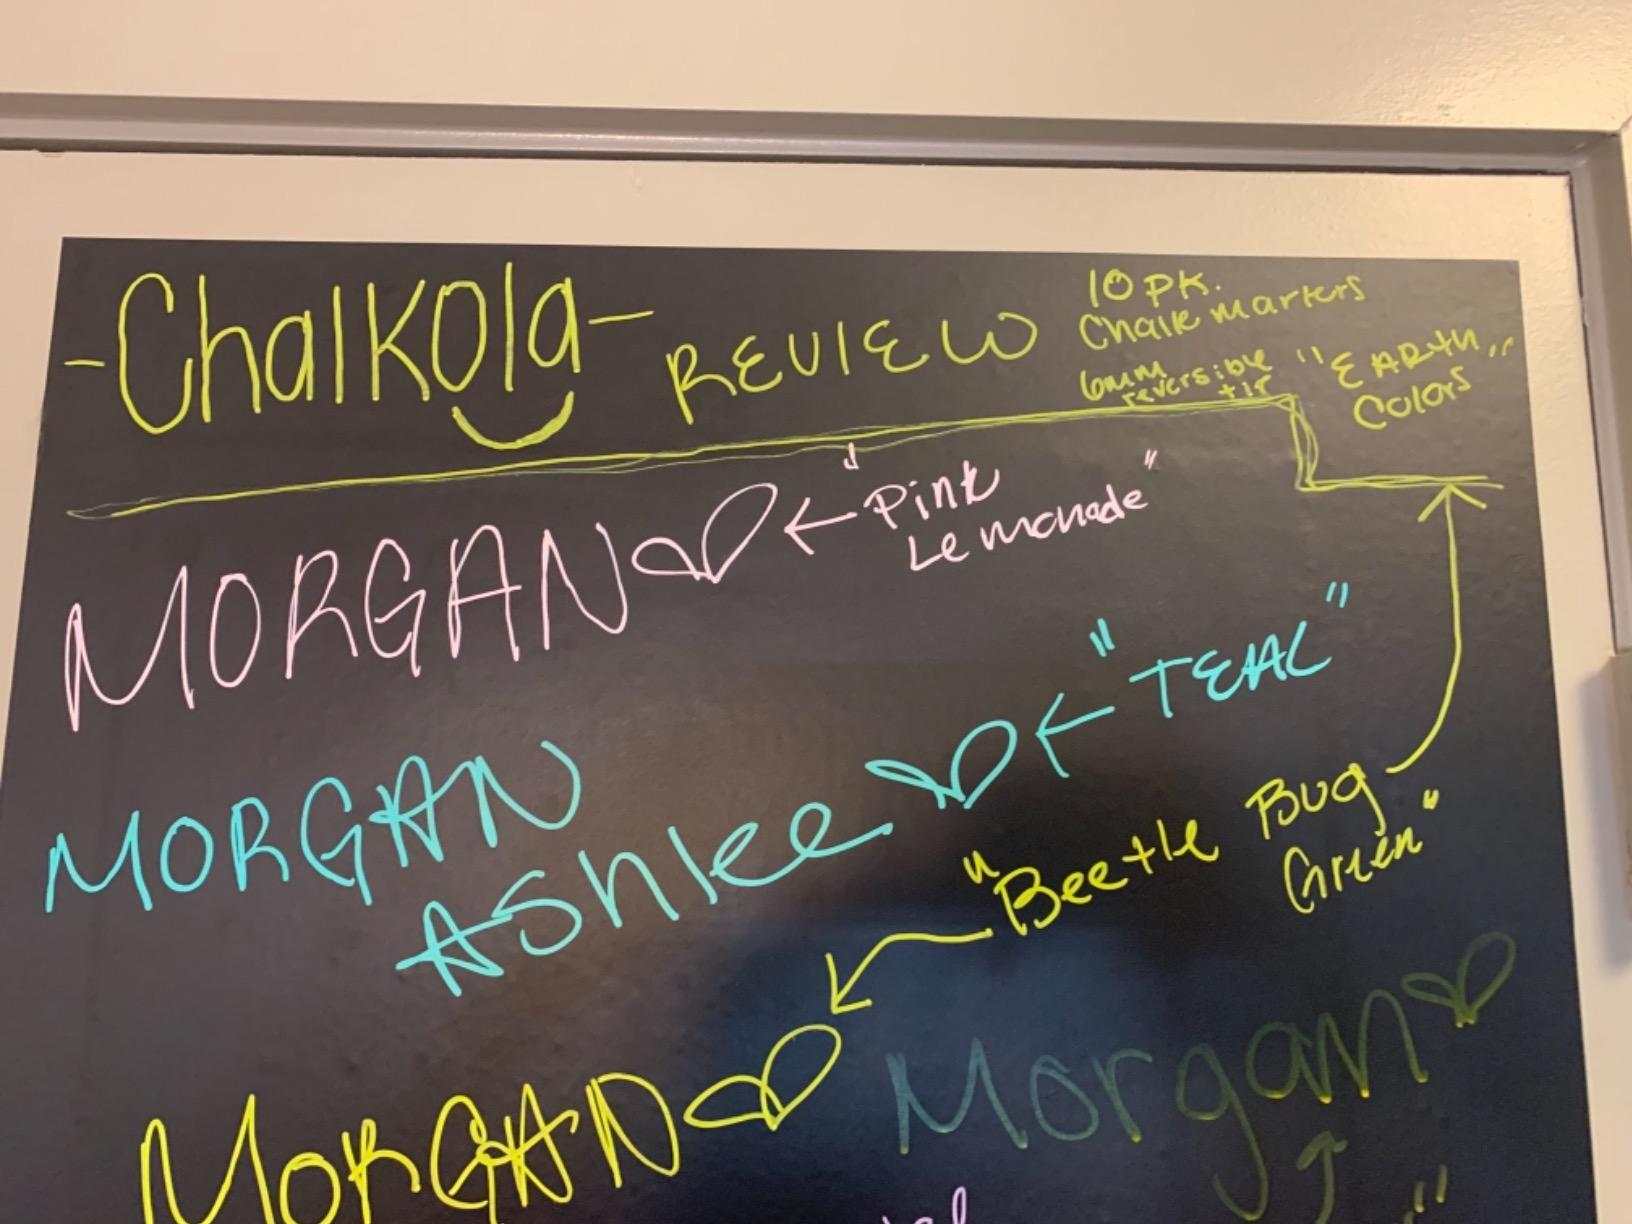 -Chalkola- REVIEW
10 PK.
Chalk markers
6mm reversible tip
"EARTH" Colors
MORGAN ← "Pink Lemonade"
MORGAN
Ashlee ← "TEAL"
"Beetle Bug Green"
MORGAN
Morgan